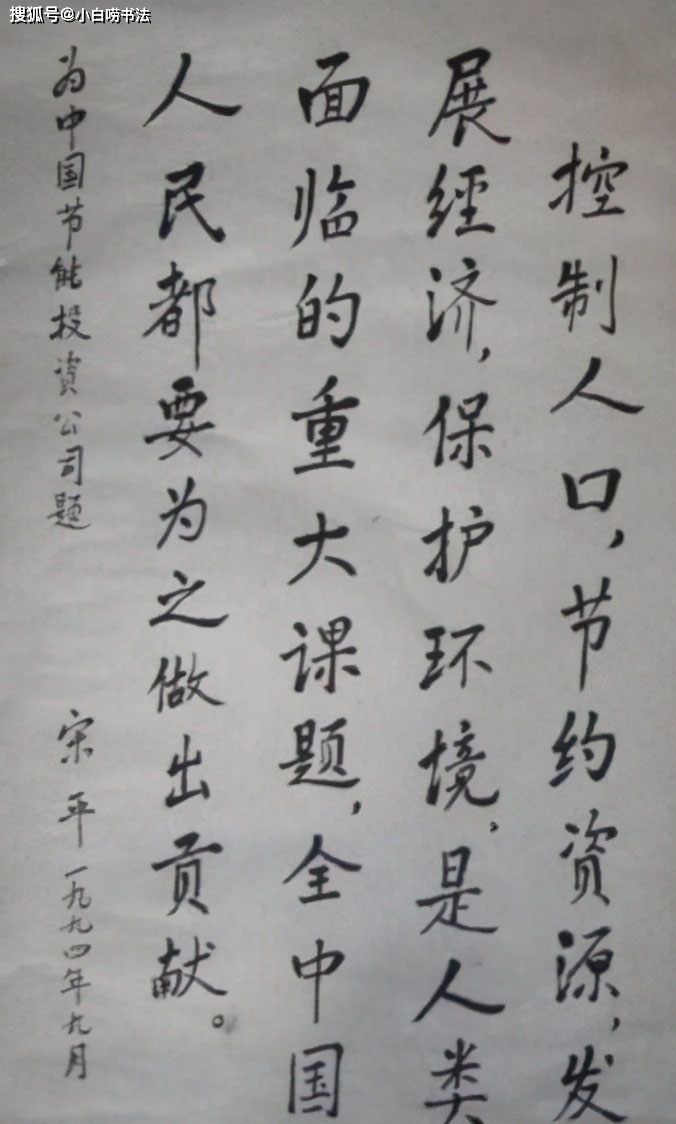 搜狐号@小白唠书法
控制人口，节约资源，发
展經济，保护环境，是人类
面临的重大课题，全中国
人民都要为之做出贡献。
为中国节能投资公司题
宋平 一九九四年九月